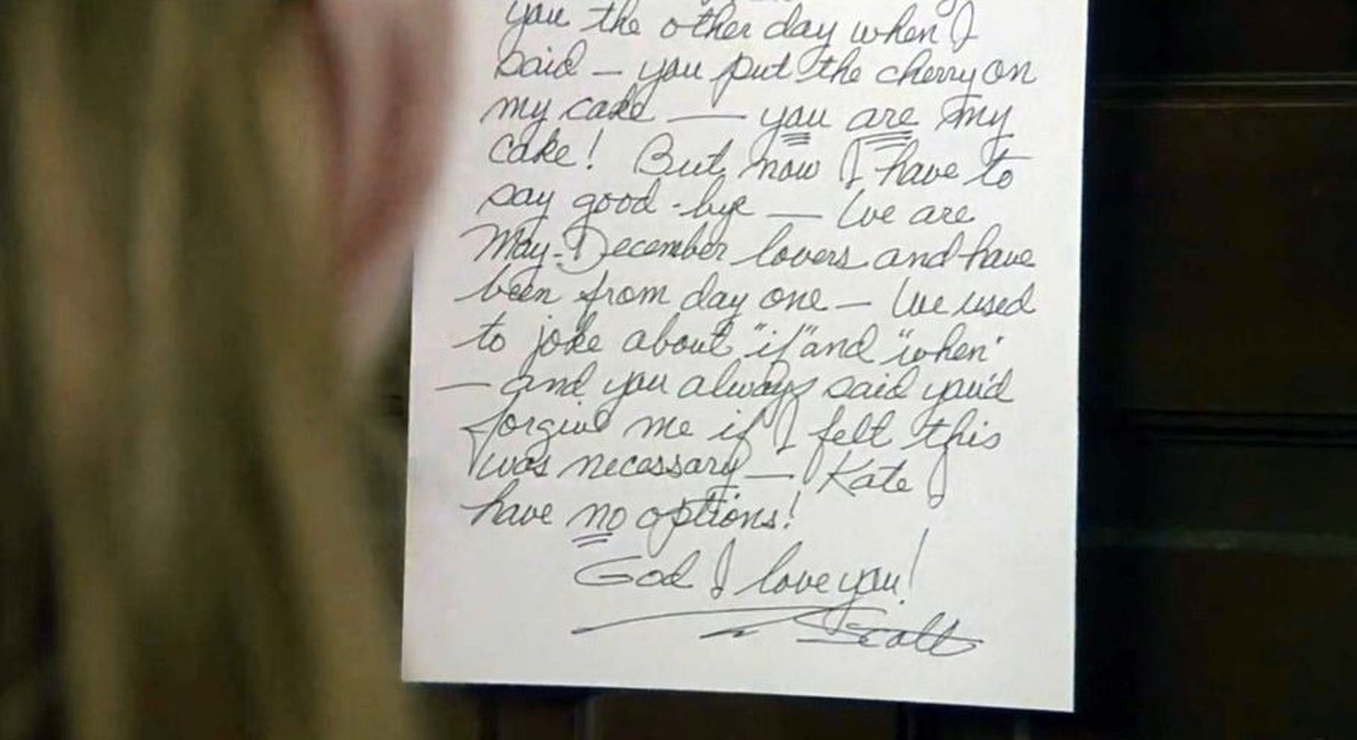 you the other day when I
said — you put the cherry on
my cake — you are my
cake! But now I have to
say good-bye — We are
May-December lovers and have
been from day one — We used
to joke about "if" and "when"
— and you always said you'd
forgive me if I felt this
was necessary — Kate I
have no options!
God I love you!
Scott